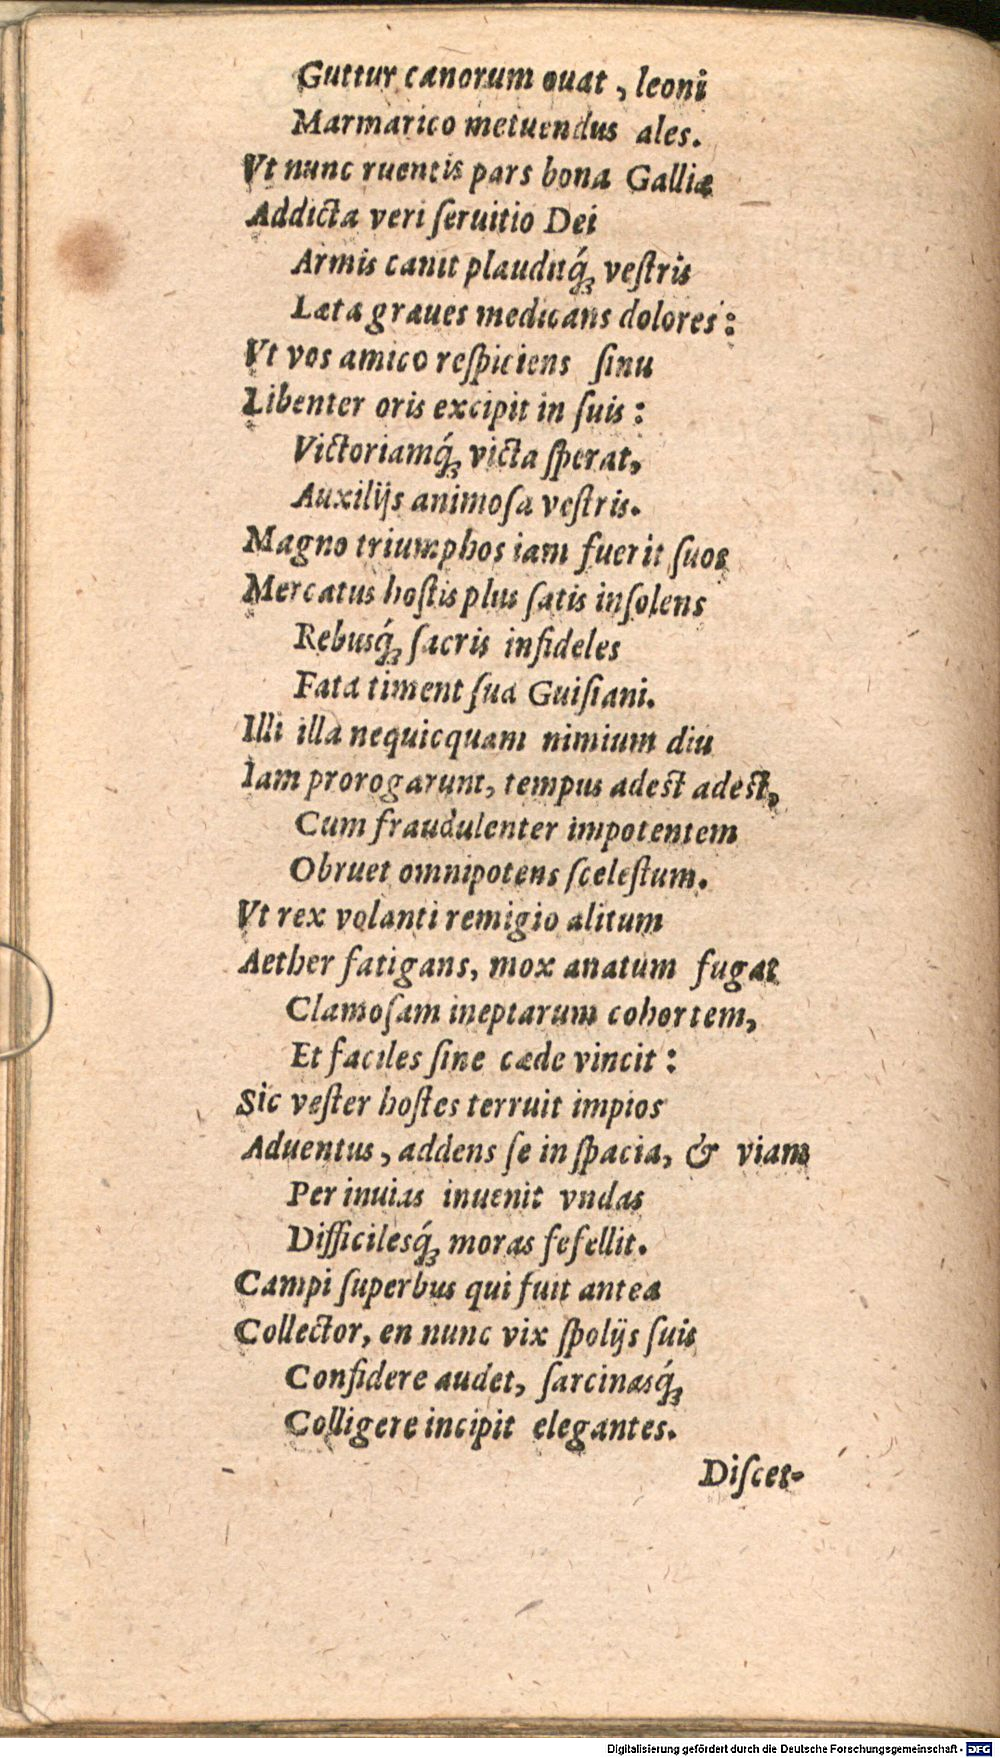 Guttur canorum ouat, leoni
Marmarico metuendus ales.
Vt nunc ruentis pars bona Galliæ
Addicta veri ſeruitio Dei
Armis canit plauditq́ꝫ veſtris
Læta graues medicans dolores:
Vt vos amico reſpiciens ſinu
Libenter oris excipit in ſuis:
Victoriamq́ꝫ victa ſperat,
Auxilijs animoſa veſtris.
Magno triumphos iam fuerit ſuos
Mercatus hoſtis plus ſatis inſolens
Rebusq́ꝫ ſacris infideles
Fata timent ſua Guiſiani.
Illi illa nequicquam nimium diu
Iam prorogarunt, tempus adest adest,
Cum fraudulenter impotentem
Obruet omnipotens ſceleſtum.
Vt rex volanti remigio alitum
Aether fatigans, mox anatum fugat
Clamoſam ineptarum cohortem,
Et faciles ſine cæde vincit:
Sic veſter hoſtes terruit impios
Aduentus, addens ſe in ſpacia, & viam
Per inuias inuenit vndas
Difficilesq́ꝫ moras fefellit.
Campi ſuperbus qui fuit antea
Collector, en nunc vix ſpolijs ſuis
Confidere audet, ſarcinasq́ꝫ
Colligere incipit elegantes.
Diſcet-
Digitalisierung gefördert durch die Deutsche Forschungsgemeinschaft - DFG